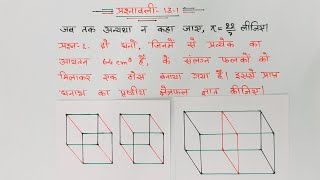 प्रश्नावली-13.1
जब तक अन्यथा न कहा जाए, π = 22/7 लीजिए।
प्रश्न-1. दो घनों, जिनमें से प्रत्येक का
आयतन 64 cm³ है, के संलग्न फलकों को
मिलाकर एक ठोस बनाया गया है। इससे प्राप्त
घनाभ का पृष्ठीय क्षेत्रफल ज्ञात कीजिए।